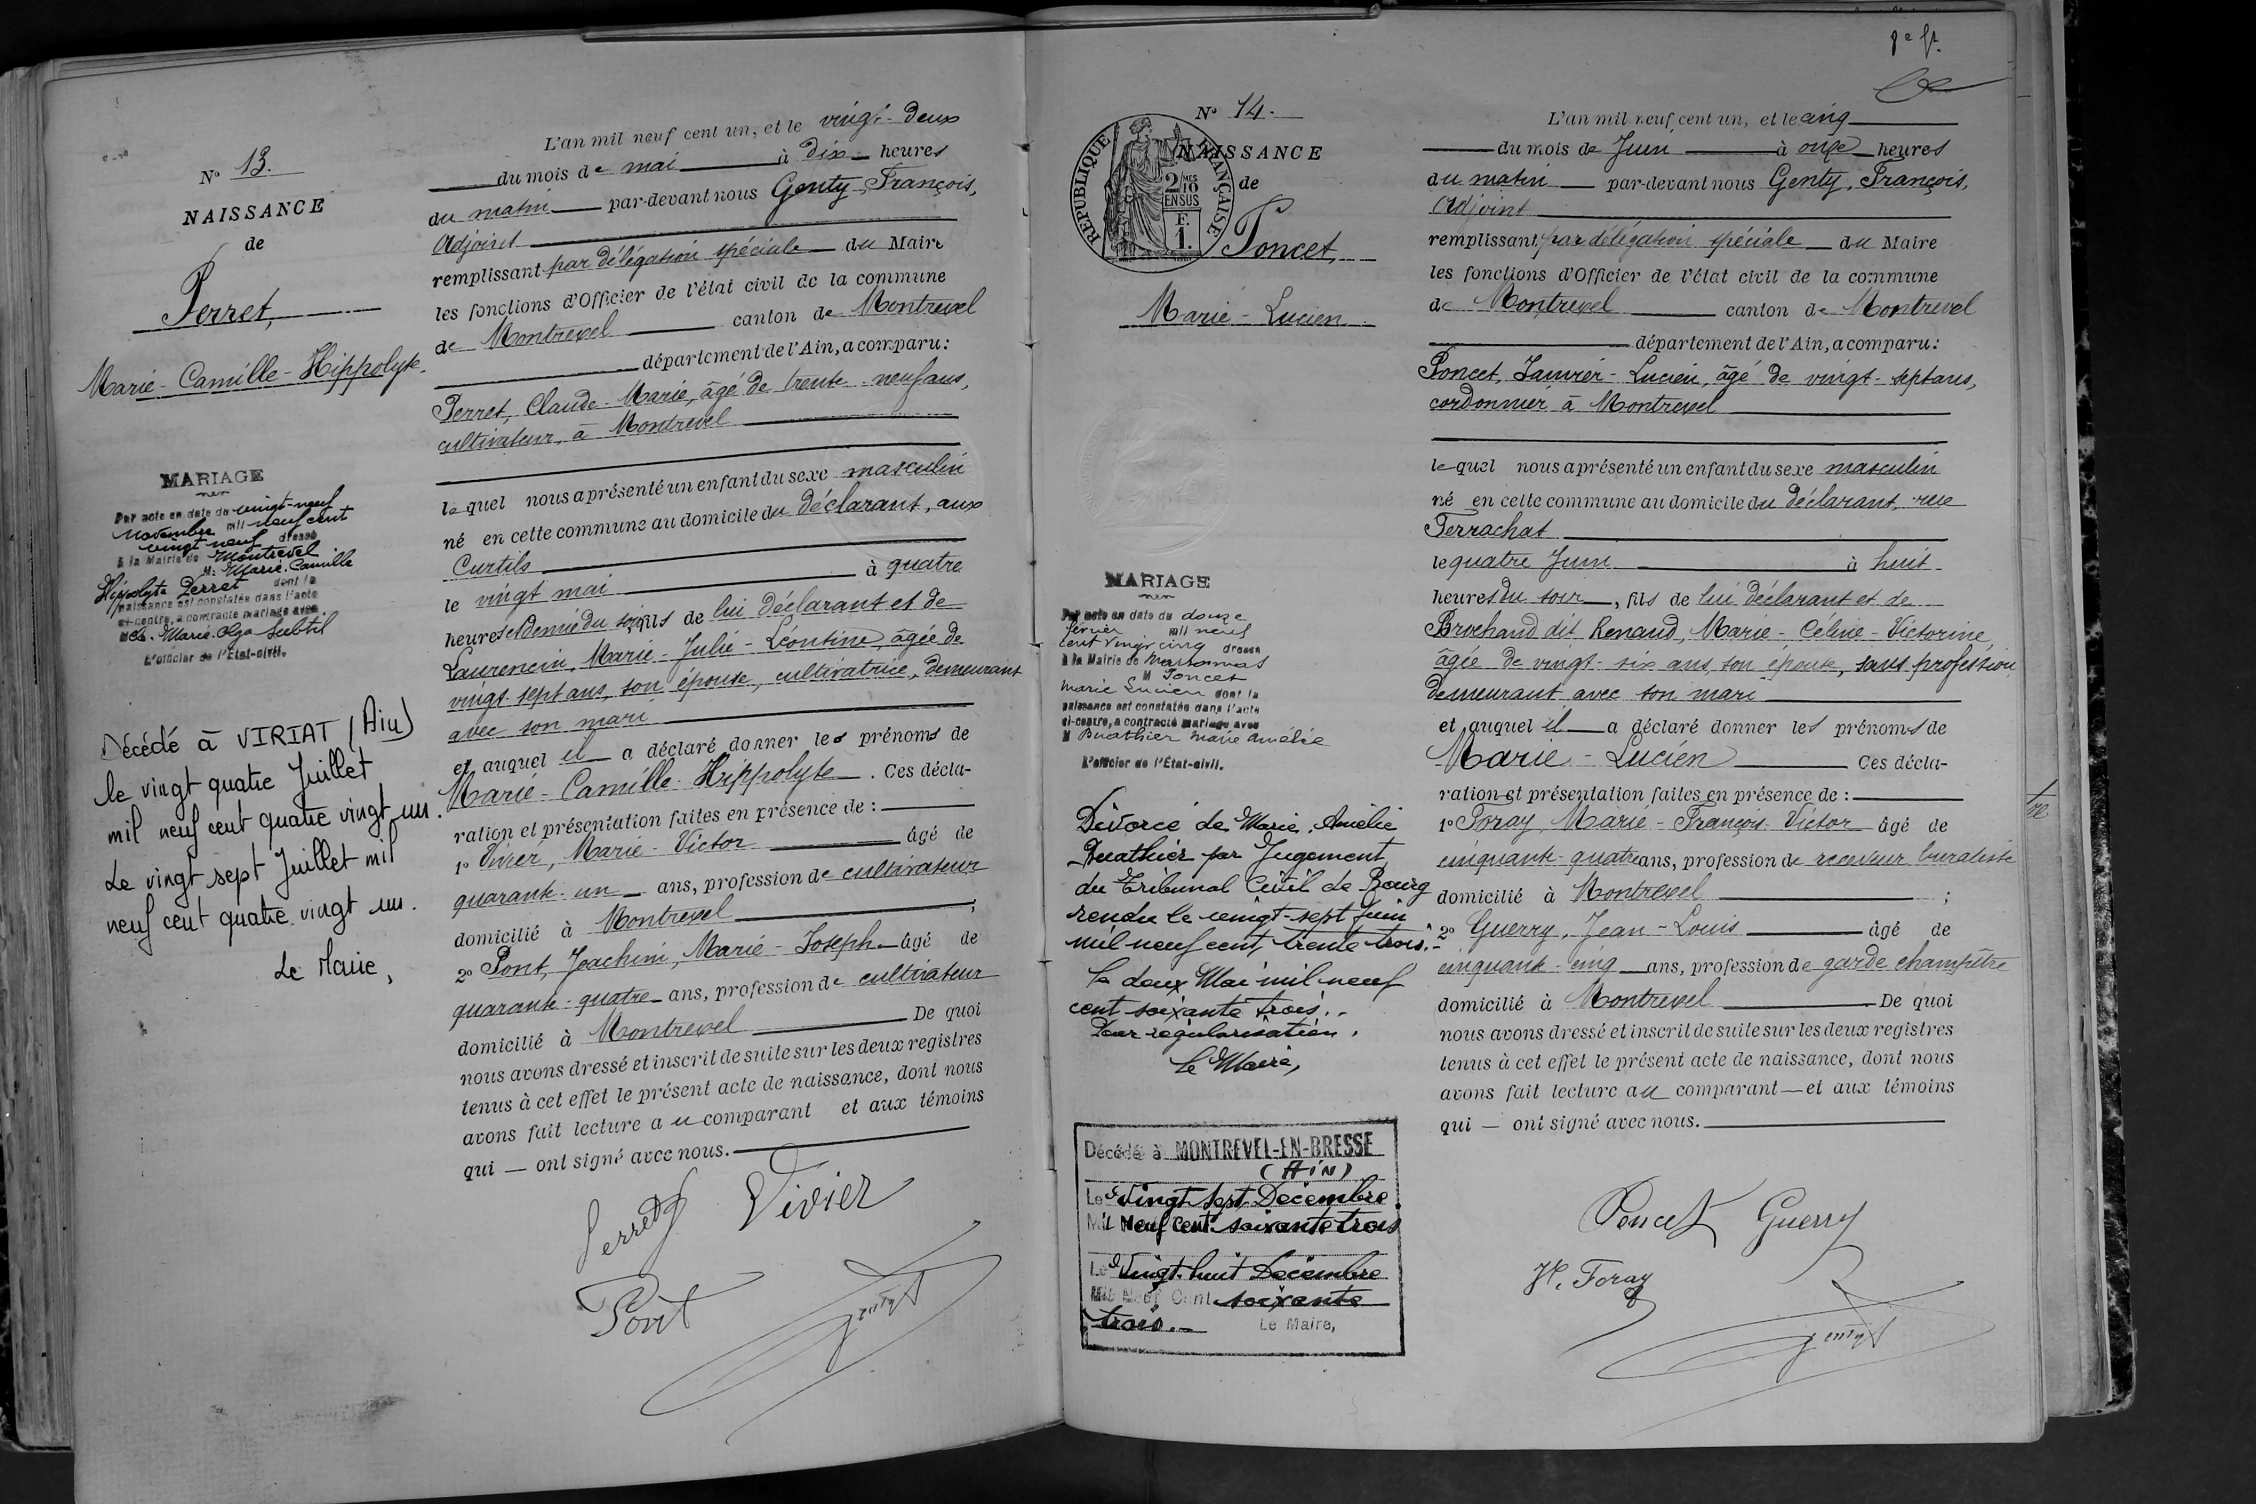 N° 13.
NAISSANCE
de
Perret,
Marie-Camille-Hippolyte.
MARIAGE
Par acte en date du vingt-neuf
novembre mil neuf cent
vingt neuf dressé
à la Mairie de Montrevel
M. Marie. Camille
Hippolyte Perret dont la
naissance est constatée dans l'acte
ci-contre, a contracté mariage avec
Marie. Olga Subtil
L'officier de l'État-civil.
Décédé à VIRIAT (Ain)
le vingt quatre Juillet
mil neuf cent quatre vingt un.
Le vingt sept Juillet mil
neuf cent quatre vingt un.
Le Maire,
L'an mil neuf cent un, et le vingt-deux
du mois de mai à dix heures
du matin par-devant nous Genty, François,
Adjoint
remplissant par délégation spéciale du Maire
les fonctions d'Officier de l'état civil de la commune
de Montrevel canton de Montrevel
département de l'Ain, a comparu:
Perret, Claude-Marie, âgé de trente-neuf ans,
cultivateur, à Montrevel
lequel nous a présenté un enfant du sexe masculin
né en cette commune au domicile du déclarant, aux
Curtils
le vingt mai à quatre
heures et demie du soir, fils de lui déclarant et de
Laurencin, Marie-Julie-Léontine, âgée de
vingt-sept ans, son épouse, cultivatrice, demeurant
avec son mari
et auquel il a déclaré donner les prénoms de
Marie-Camille-Hippolyte. Ces décla-
ration et présentation faites en présence de:
1° Vivier, Marie-Victor âgé de
quarante-un ans, profession de cultivateur
domicilié à Montrevel ;
2° Pont, Joachim, Marie-Joseph âgé de
quarante-quatre ans, profession de cultivateur
domicilié à Montrevel De quoi
nous avons dressé et inscrit de suite sur les deux registres
tenus à cet effet le présent acte de naissance, dont nous
avons fait lecture au comparant et aux témoins
qui — ont signé avec nous.
Perret Vivier
Pont Genty
1e ft.
N° 14.
NAISSANCE
de
RÉPUBLIQUE FRANÇAISE
2/10 MES
EN SUS
F.
1.
Poncet,
Marie-Lucien
MARIAGE
Par acte en date du douze
février mil neuf
cent vingt cinq dressé
à la Mairie de Marsonnas
M Poncet
Marie Lucien dont la
naissance est constatée dans l'acte
ci-contre, a contracté mariage avec
M Buathier Marie Amélie
L'officier de l'État-civil.
Divorcé de Marie. Amélie
Buathier par Jugement
du Tribunal Civil de Bourg
rendu le vingt-sept juin
mil neuf cent trente trois.-
le deux Mai mil neuf
cent soixante trois..
Pour régularisation.
Le Maire,
Décédé à MONTREVEL-EN-BRESSE
(AIN)
Le Vingt Sept Décembre
Mil Neuf Cent soixante trois
Le Vingt-huit Décembre
Mil Neuf Cent soixante
trois.-
Le Maire,
L'an mil neuf cent un, et le cinq
du mois de Juin à onze heures
du matin par-devant nous Genty, François,
Adjoint
remplissant par délégation spéciale du Maire
les fonctions d'Officier de l'état civil de la commune
de Montrevel canton de Montrevel
département de l'Ain, a comparu:
Poncet, Janvier-Lucien, âgé de vingt-sept ans,
cordonnier à Montrevel
lequel nous a présenté un enfant du sexe masculin
né en cette commune au domicile du déclarant, rue
Ferrachat
le quatre Juin à huit
heures du soir, fils de lui déclarant et de
Brochand dit Renaud, Marie-Céline-Victorine,
âgée de vingt-six ans, son épouse, sans profession
demeurant avec son mari
et auquel il a déclaré donner les prénoms de
Marie-Lucien Ces décla-
ration et présentation faites en présence de:
1° Foray, Marie-François-Victor âgé de
cinquante-quatre ans, profession de receveur buraliste
domicilié à Montrevel ;
2° Guerry, Jean-Louis âgé de
cinquante-cinq ans, profession de garde champêtre
domicilié à Montrevel De quoi
nous avons dressé et inscrit de suite sur les deux registres
tenus à cet effet le présent acte de naissance, dont nous
avons fait lecture au comparant — et aux témoins
qui — ont signé avec nous.
Poncet Guerry
V. Foray
Genty